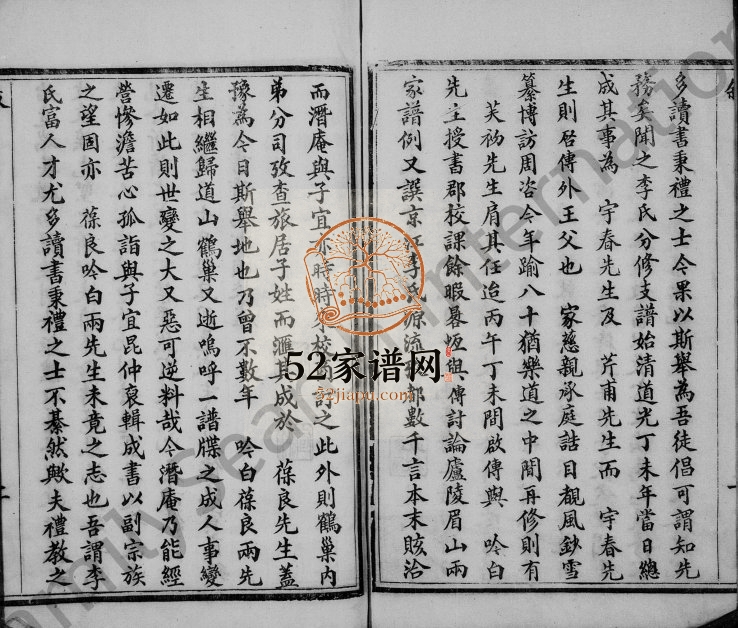 多讀書秉禮之士今果以斯舉為吾徒倡可謂知先
務矣聞之李氏分修支譜始清道光丁未年當日總
成其事為 宇春先生及 芹甫先生而 宇春先
生則啓傳外王父也 家慈親承庭詰目覩風鈔雪
纂博訪周咨今年踰八十猶樂道之中間再修則有
芙初先生肩其任迨丙午丁未間啟傳與 吟白
先生授書郡校課餘暇晷恆與傳討論廬陵眉山兩
家譜例又譔京江李氏源流 部數千言本末賅洽
而潛庵與子宜亦時時 校 討之此外則鶴巢內
弟分司攷查旅居子姓而滙其成於 葆良先生蓋
豫為今日斯舉地也乃曾不數年 吟白葆良兩先
生相繼歸道山鶴巢又逝嗚呼一譜牒之成人事變
遷如此則世變之大又惡可逆料哉今潛庵乃能經
營慘澹苦心孤詣與子宜昆仲裒輯成書以副宗族
之望固亦 葆良吟白兩先生未竟之志也吾謂李
氏富人才尤多讀書秉禮之士不綦然歟夫禮教之
52家谱网
52jiapu.com
FamilySearch International